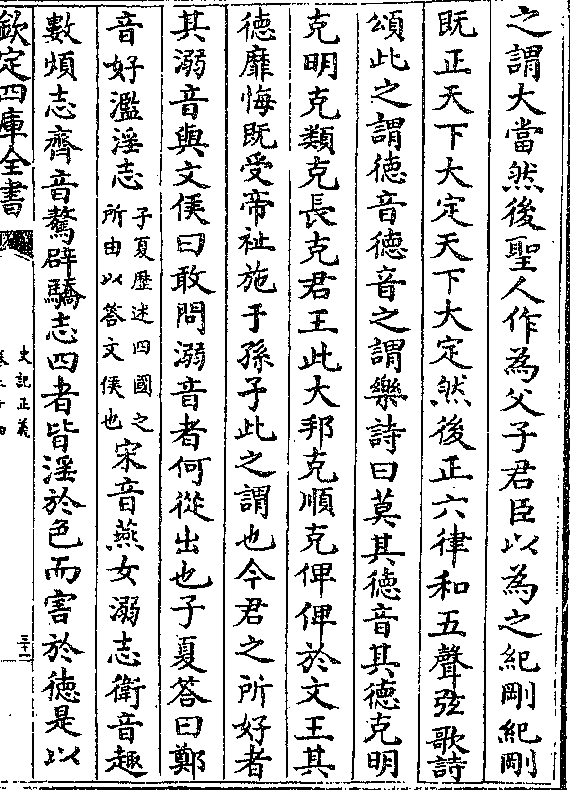 之謂大當然後聖人作為父子君臣以為之紀剛紀剛
既正天下大定天下大定然後正六律和五聲弦歌詩
頌此之謂徳音徳音之謂樂詩曰莫其徳音其徳克明
克明克類克長克君王此大邦克順克俾俾於文王其
徳靡悔既受帝祉施于孫子此之謂也今君之所好者
其溺音與文侯曰敢問溺音者何從出也子夏答曰鄭
音好濫淫志子夏歴述四國之所由以答文侯也宋音燕女溺志衛音趣
數煩志齊音驁辟驕志四者皆淫於色而害於徳是以
欽定四庫全書
史記正義
三十一